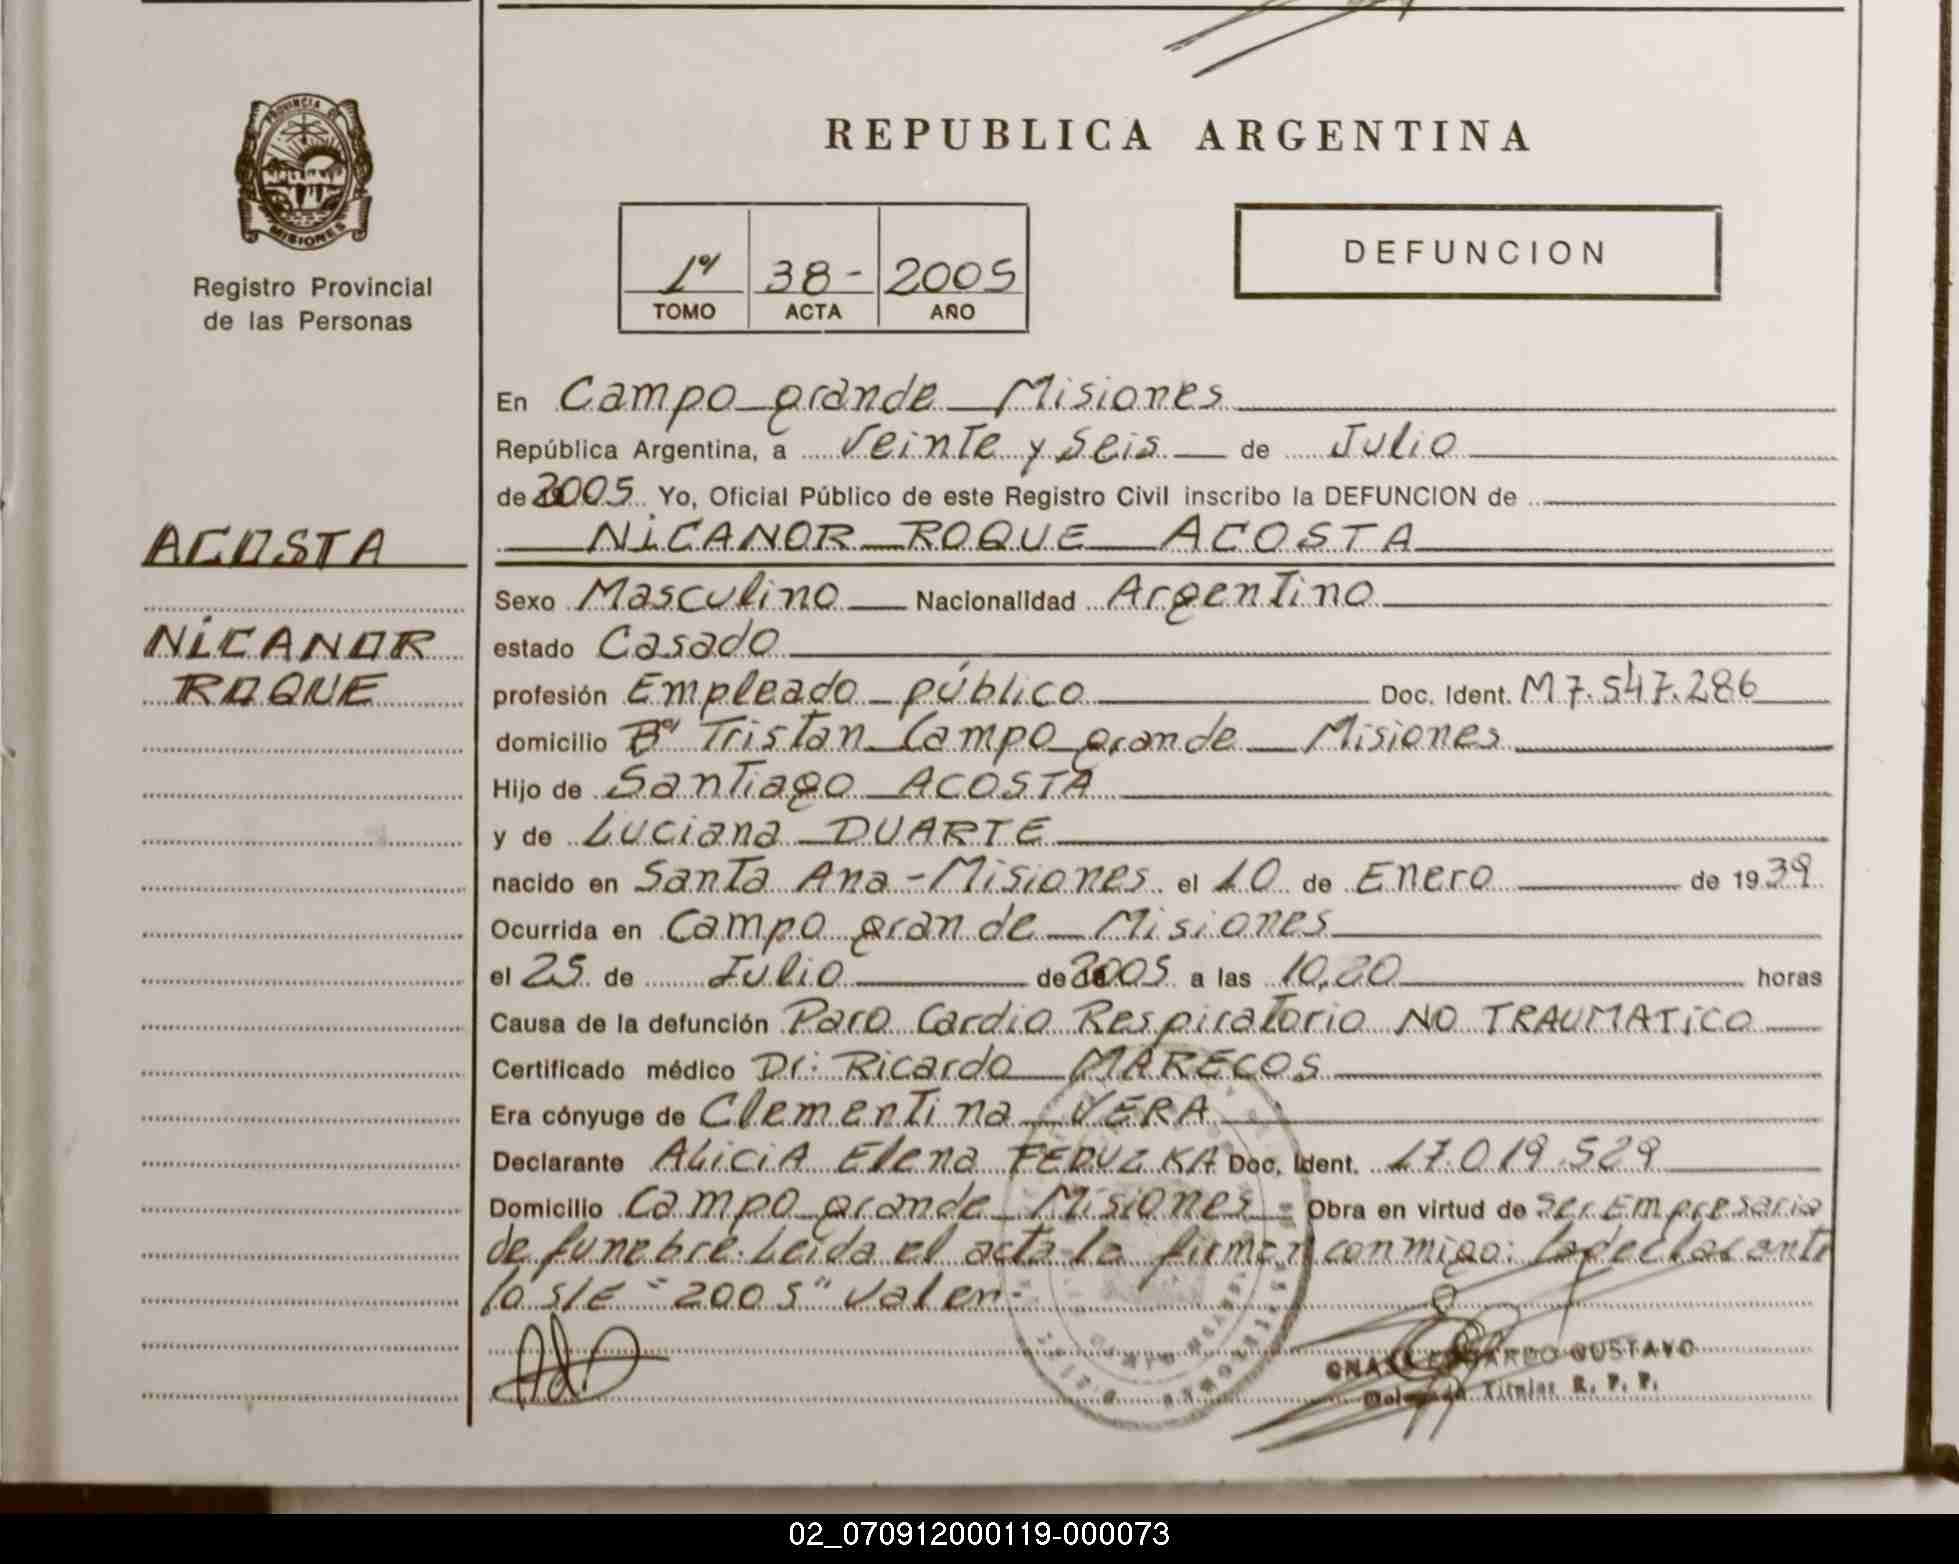 PROVINCIA DE
MISIONES
Registro Provincial
de las Personas
REPUBLICA ARGENTINA
1º 38- 2005
TOMO ACTA AÑO
DEFUNCION
En Campo grande Misiones
República Argentina, a Veinte y Seis de Julio
de 2005 Yo, Oficial Público de este Registro Civil inscribo la DEFUNCION de
NICANOR ROQUE ACOSTA
ACOSTA
NICANOR
ROQUE
Sexo Masculino Nacionalidad Argentino
estado Casado
profesión Empleado público Doc. Ident. M7.547.286
domicilio Bº Tristan Campo grande Misiones
Hijo de Santiago ACOSTA
y de Luciana DUARTE
nacido en Santa Ana - Misiones el 10 de Enero de 1939
Ocurrida en Campo grande Misiones
el 25 de Julio de 2005 a las 10,20 horas
Causa de la defunción Paro Cardio Respiratorio NO TRAUMATICO
Certificado médico Dr: Ricardo MARECOS
Era cónyuge de Clementina VERA
Declarante ALICIA Elena FEDUZKA Doc. Ident. 17.019.529
Domicilio Campo grande Misiones Obra en virtud de ser Empresaria
de funebre. Leida el acta la firman conmigo: la declarante
lo s/E "2005" Valen-
EDUARDO GUSTAVO
Titular R. P. P.
02_070912000119-000073